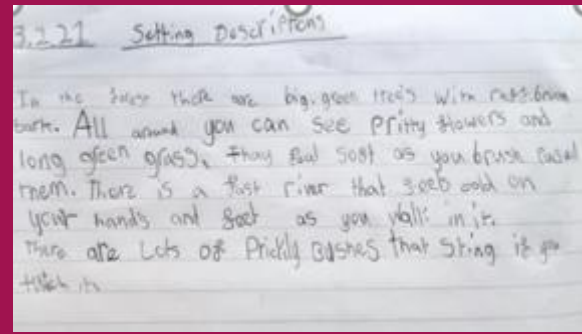 3.2.21 Setting Descriptions
In the forest there are big, green trees with brown
bark. All around you can see Pritty flowers and
long green grass, thay feal soft as you brush Passd
them. There is a fast river that feels cold on
your hands and feet as you walk in it.
There are Lots of Prickly Bushes that Sting if you
touch it.